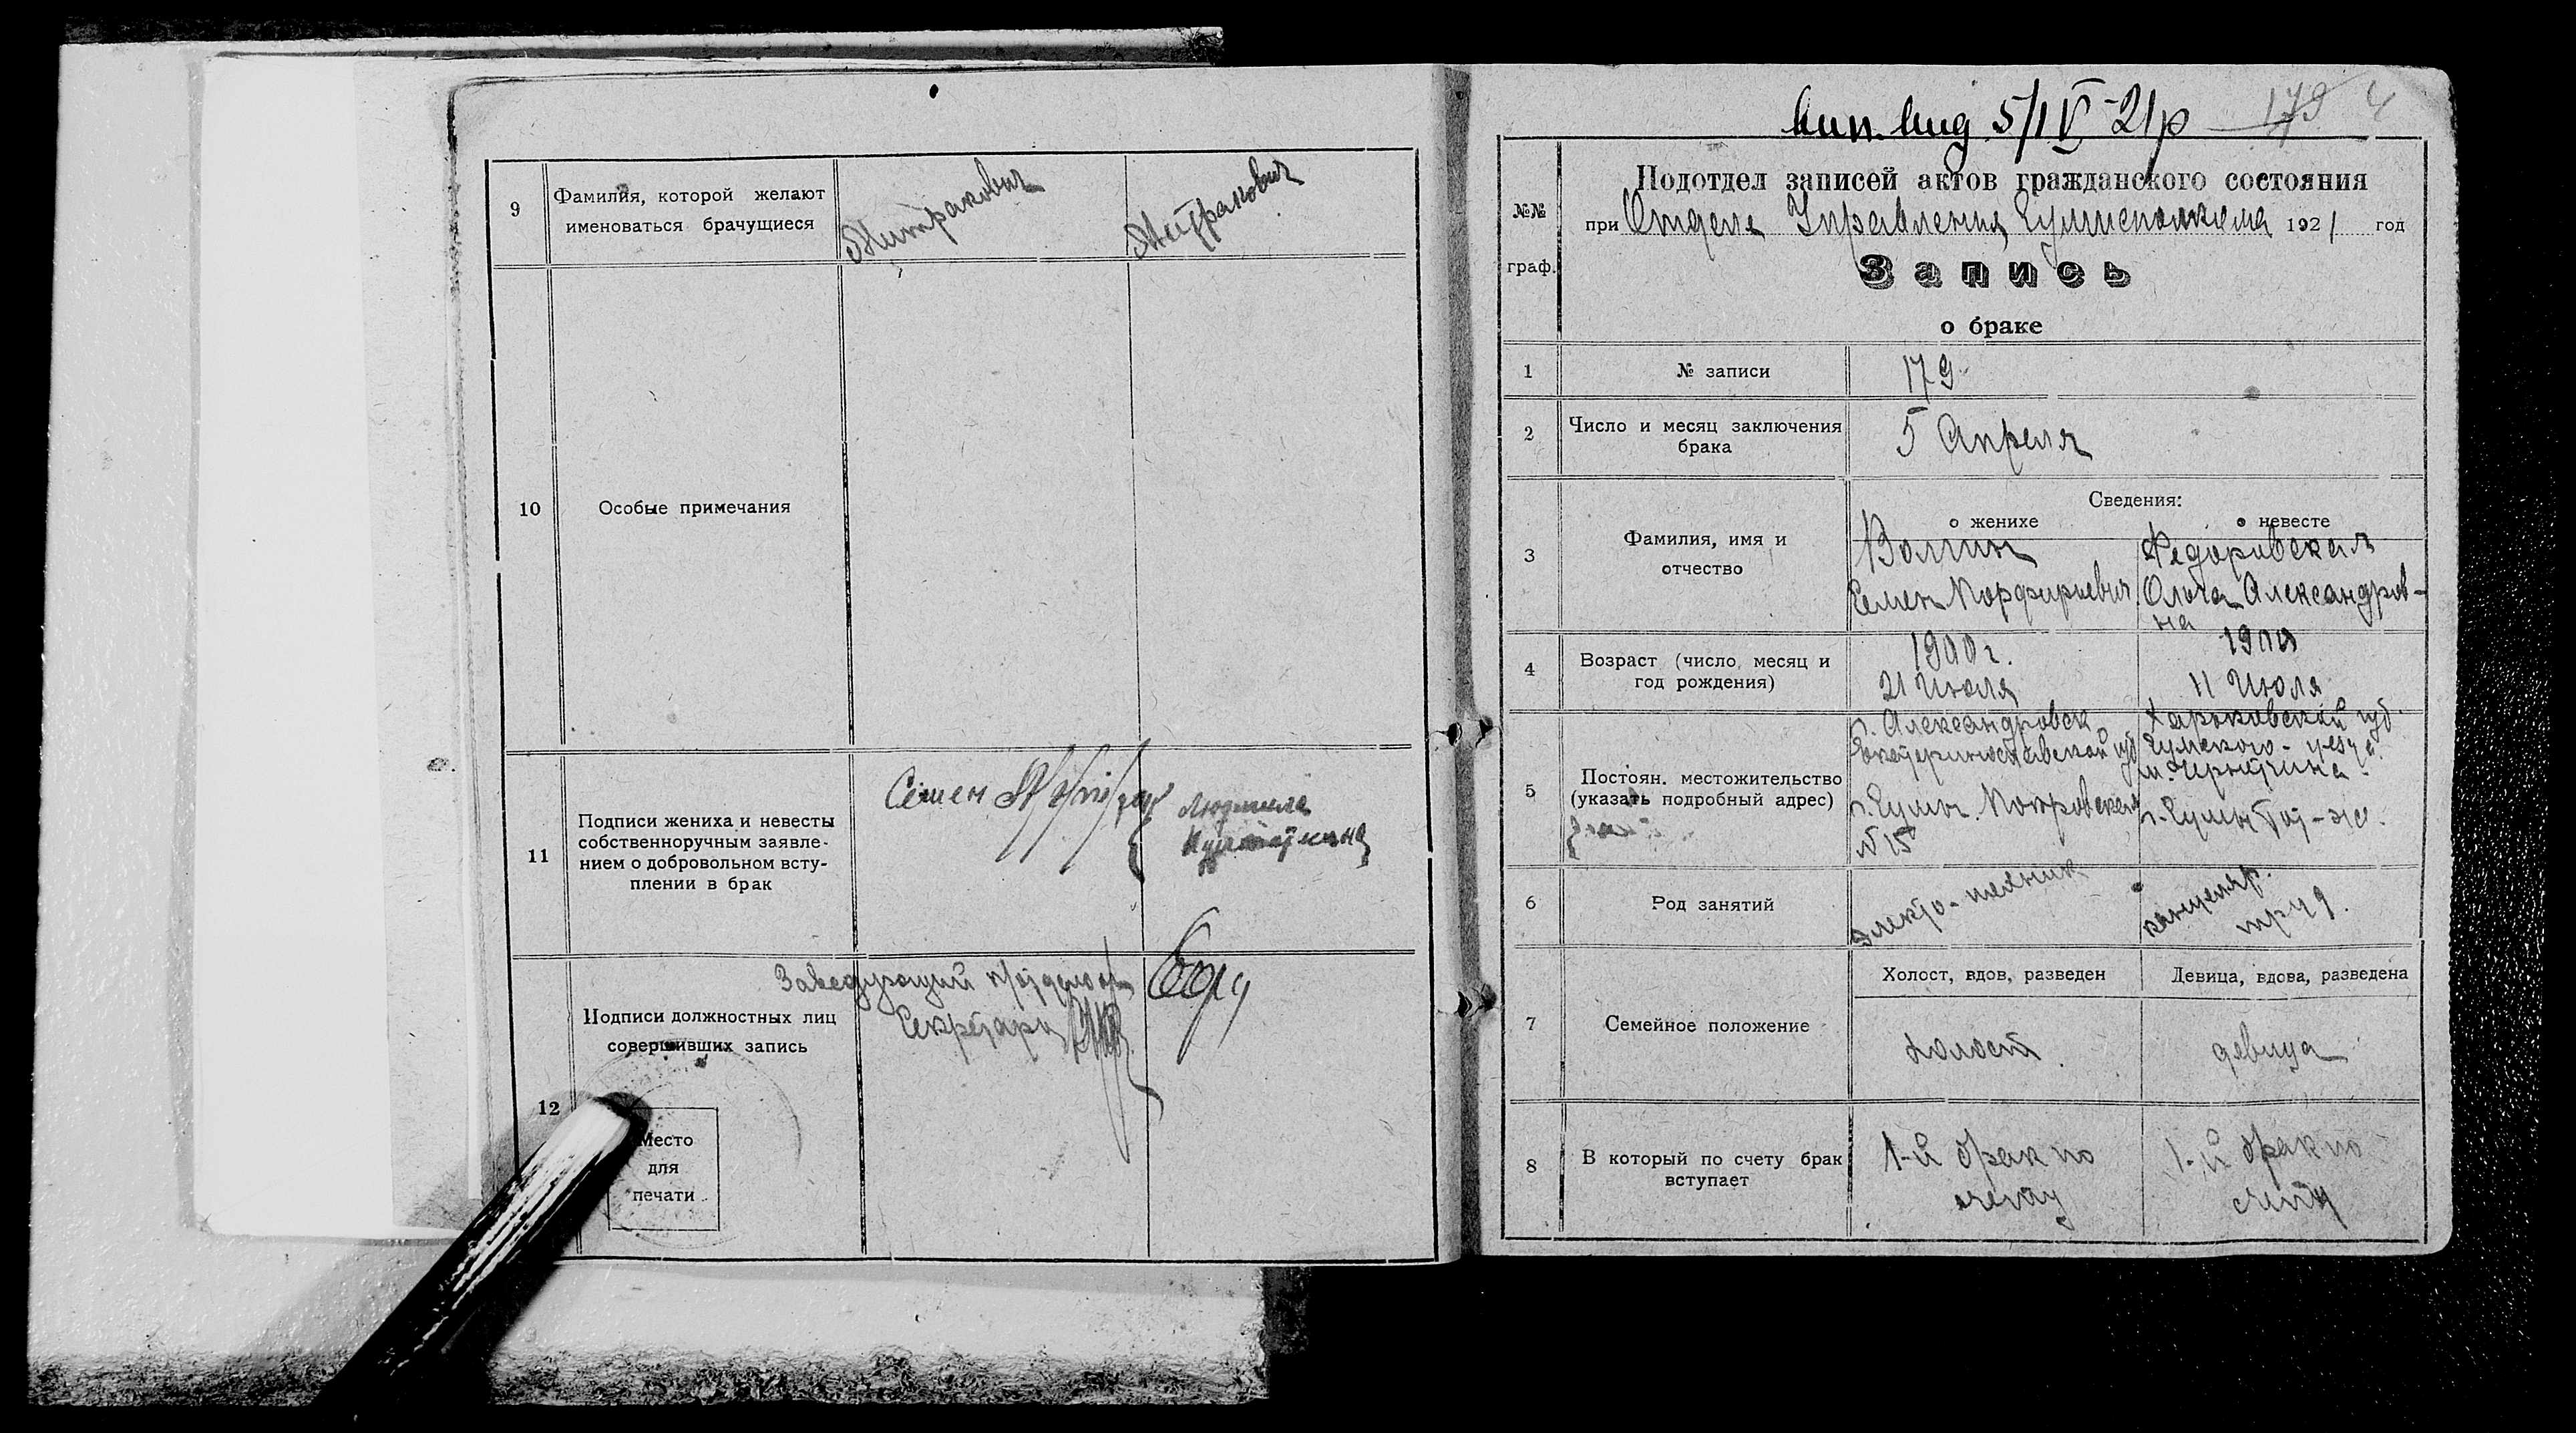 9
Фамилия, которой желают
именоваться брачущиеся
Митракович
Митракович
10
Особые примечания
11
Подписи жениха и невесты
собственноручным заявле-
нием о добровольном всту-
плении в брак
Семен
Людмила
12
Подписи должностных лиц
совершивших запись
Заведующий
Секретарь
Место
для
печати
5/IV-21р
179 4
№№
граф.
Подотдел записей актов гражданского состояния
при Отделе Управления Сумисполкома 1921 год
Запись
о браке
1
№ записи
179
2
Число и месяц заключения
брака
5 Апреля
3
Фамилия, имя и
отчество
Сведения:
о женихе
о невесте
Волгин
Семен Порфирьевич
Федоровская
Ольга Александров-
на
4
Возраст (число, месяц и
год рождения)
1900 г.
21 Июля
11 Июля
5
Постоян. местожительство
(указать подробный адрес)
г. Александровск
Екатеринославской губ.
г. Сумы. Покровская
№ 15
Харьковской губ.
Сумского - уезда
г. Сумы
6
Род занятий
электро-техник
канцеляр.
труд.
7
Семейное положение
Холост, вдов, разведен
Девица, вдова, разведена
холост
девица
8
В который по счету брак
вступает
1-й брак по
счету
1-й брак по
счету